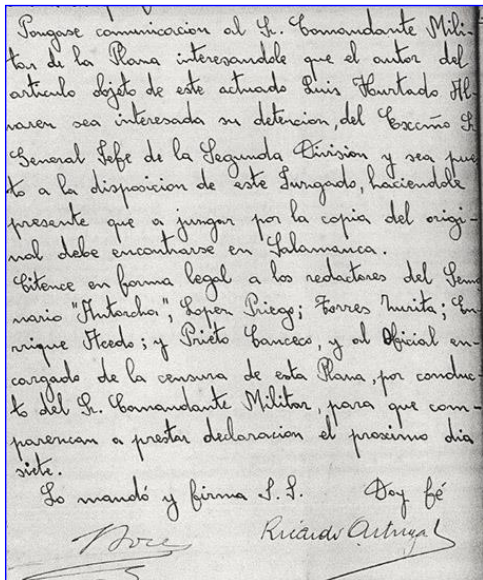 Pongase comunicacion al Sr. Comandante Mili-
tar de la Plana interesandole que el autor del
articulo objeto de este actuado Luis Hurtado Al-
varen sea interesada su detencion, del Excmo Sr
General Jefe de la Segunda Division y sea pues
to a la disposicion de este Jurgado, haciendole
presente que a jurgar por la copia del origi-
nal debe encontrarse en Salamanca.
Citence en forma legal a los redactores del Sema
nario "Antorcha", Lopen Priego; Torres Zurita; En
rique Acedo; y Prieto Canceco, y al Oficial en-
cargado de la censura de esta Plana, por conduc
to del Sr. Comandante Militar, para que com-
parencan a prestar declaracion el proximo dia
siete.
Lo mandó y firma S.S. Doy fé
Ricardo